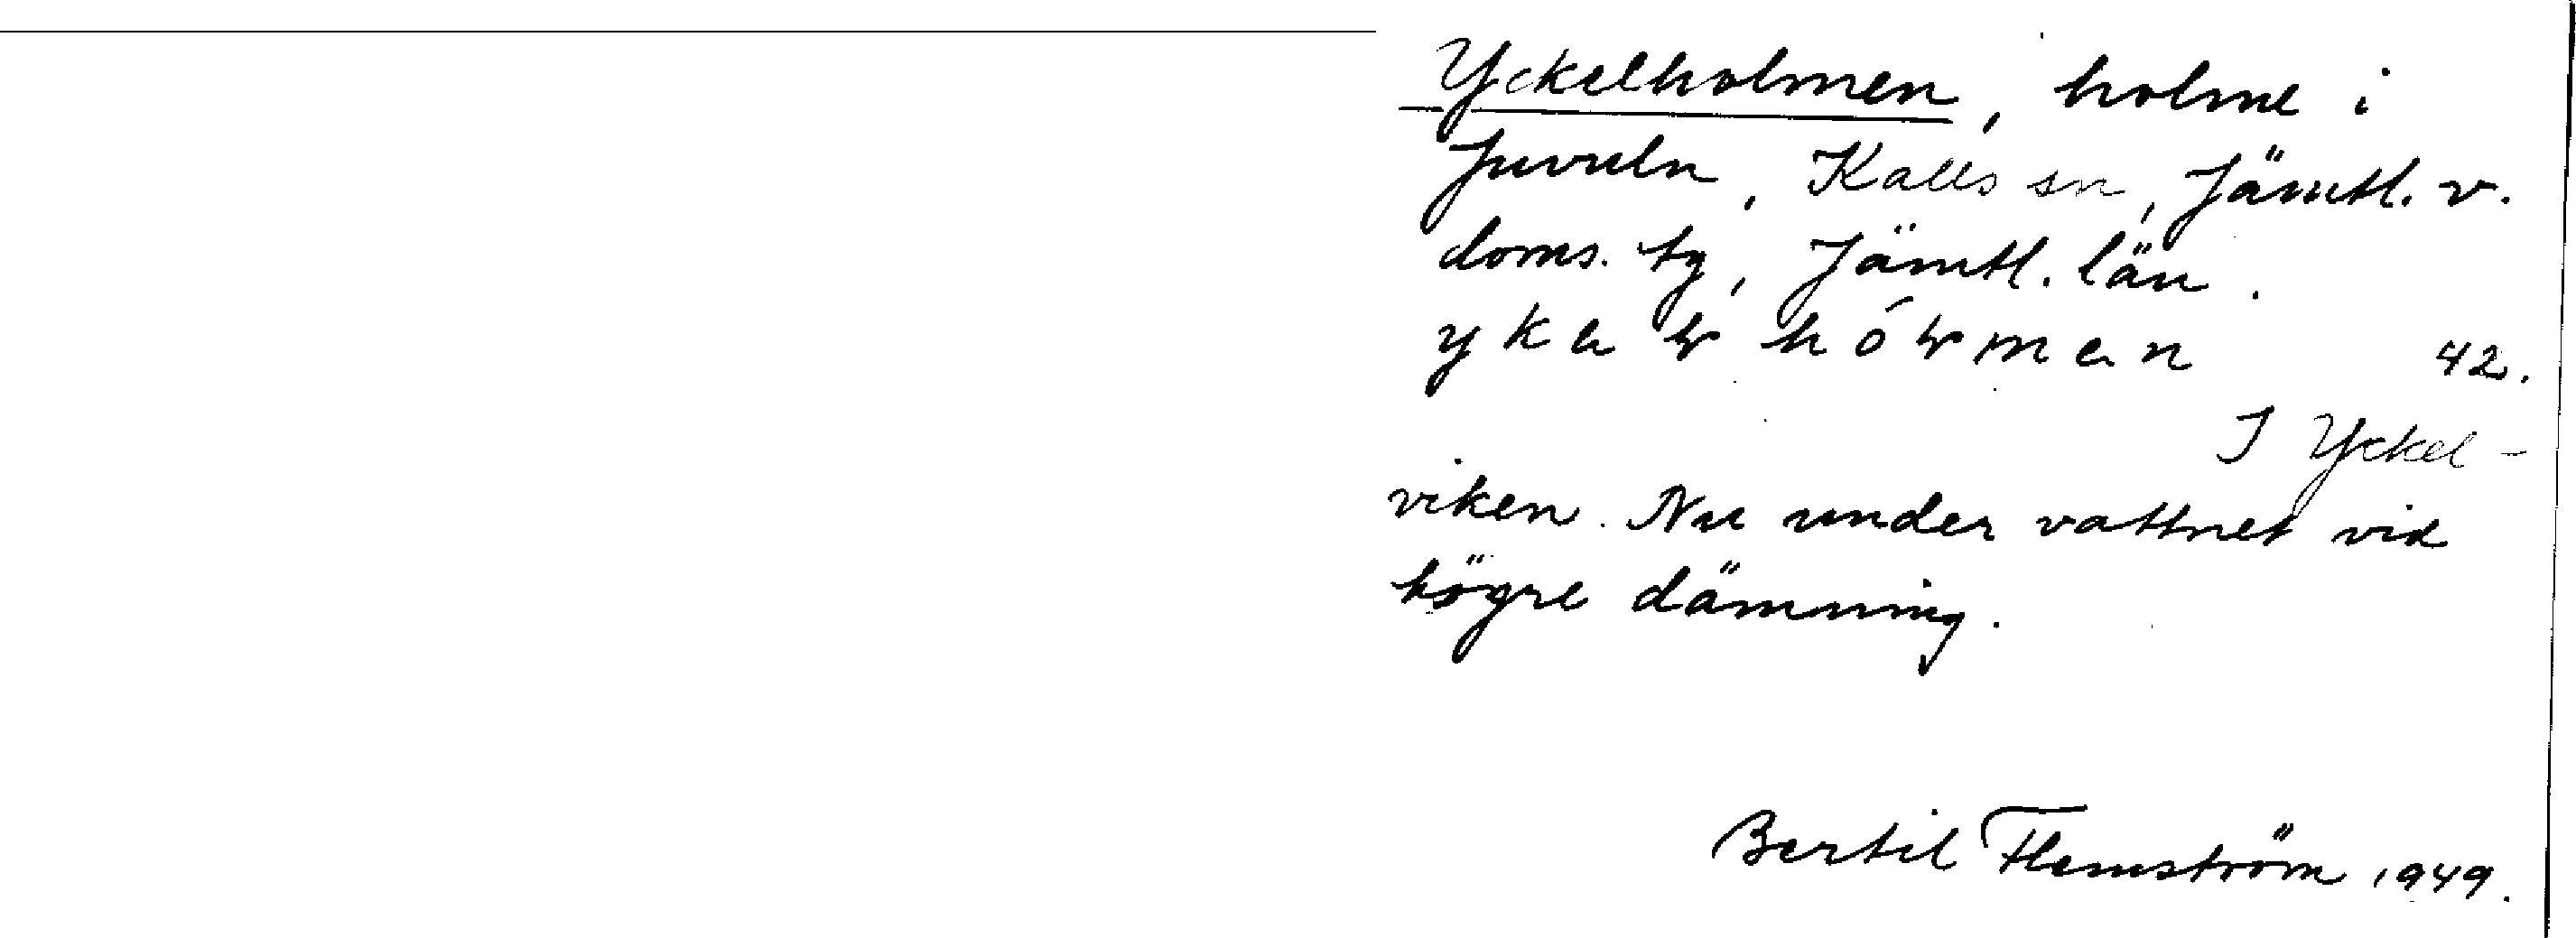 Yckelholmen, holme i
Juvuln, Kalls sn, Jämtl. v.
doms. tg, Jämtl. län.
42.
I Yckel-
viken. Nu under vattnet vid
högre dämning.
Bertil Flemström 1949.